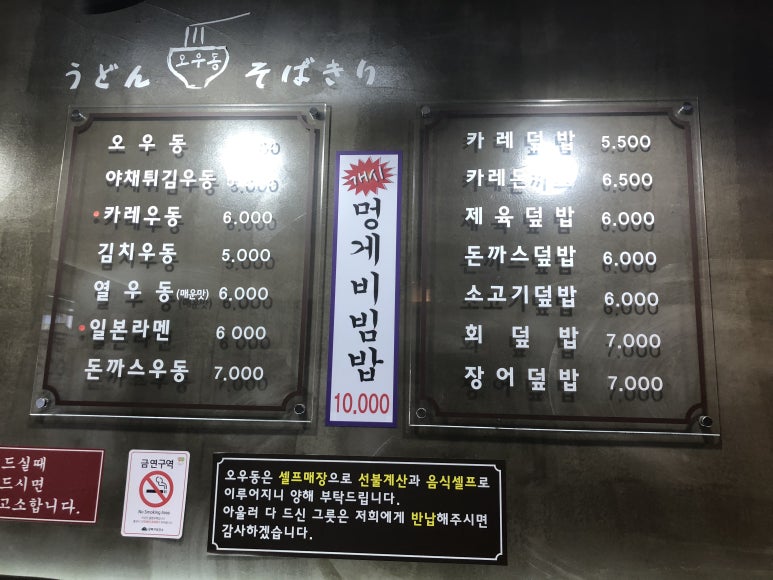 오우동
うどん そばきり
오우동
야채튀김우동
카레우동 6.000
김치우동 5.000
열우동(매운맛) 6.000
일본라멘 6 000
돈까스우동 7.000
개시
멍게비빔밥
10.000
카레덮밥 5.500
카레돈까스 6.500
제육덮밥 6.000
돈까스덮밥 6,000
소고기덮밥 6,000
회덮밥 7,000
장어덮밥 7,000
드실때
드시면
고소합니다.
금연구역
No Smoking Area
오우동은 셀프매장으로 선불계산과 음식셀프로
이루어지니 양해 부탁드립니다.
아울러 다 드신 그릇은 저희에게 반납해주시면
감사하겠습니다.